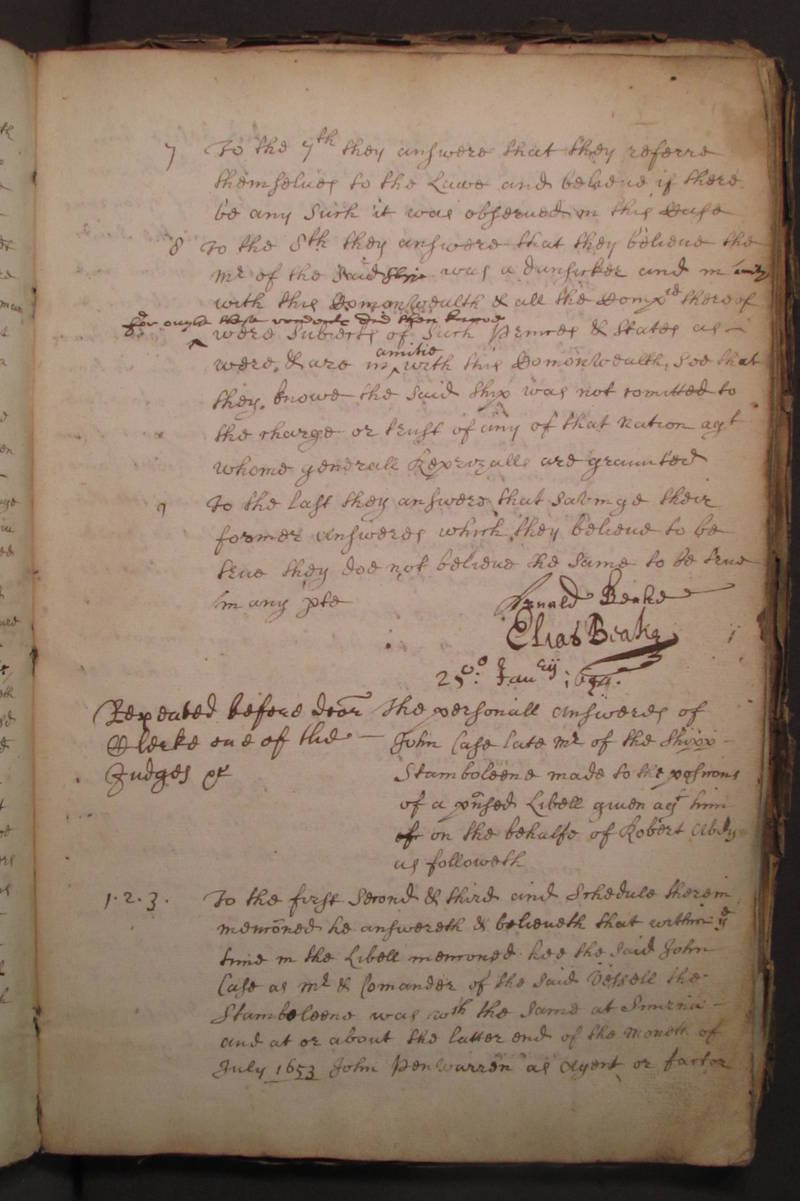 7 To the 7th they answere that they referre
themselves to the Lawe and beleeve if there
be any such it was observed in this Case
8 To the 8th they answere that they believe the
Mr of the said Shipp was a Dunkirker and in amity
with this Comonwealth & all the Compa thereof
for ought these rendents did then knowe
were subiects of such Princes & States as
were, & are in amitie with this Comonwealth, Soe that
they knowe the said Ship was not comitted to
the charge or trust of any of that nation agt
whome generall Reprizalls are graunted
9 To the last they answere that savinge their
former answeres which they believe to be
true they doe not believe the same to be true
in any pte
Arnald Beake
Elias Beake
25o: Janryij 1654.
Repeated before Doctor
Clerke one of the
Judges &c
The personall answeres of
John Case late Mr of the Shipp
Stamboleene made to the posicons
of a pnsed Libell given agt him
of on the behalfe of Robert Abdy
as followeth
1. 2. 3. To the first second & third and Schedule therein
menconed he answereth & believeth that within ye
time in the Libell menconed hee the said John
Case as Mr & Comander of the said Vessell the
Stamboleene was wth the same at Smirna
and at or about the latter end of the moneth of
July 1653 John Penwarren as Agent or factor